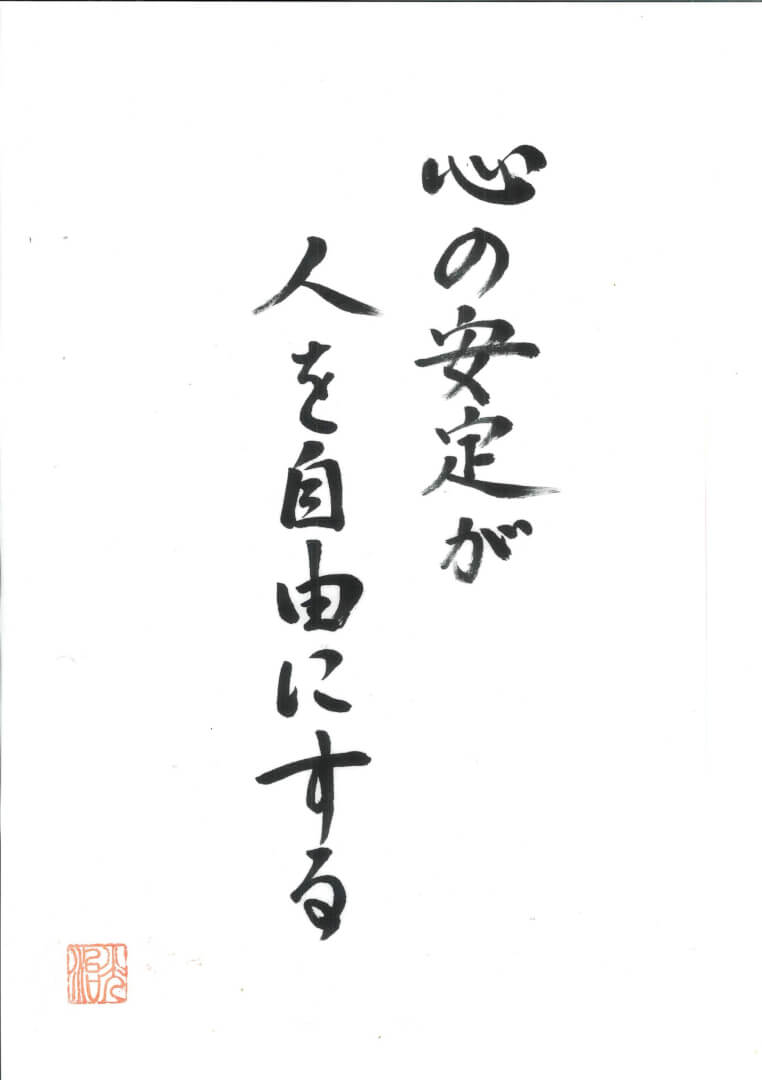 心の安定が
人を自由にする